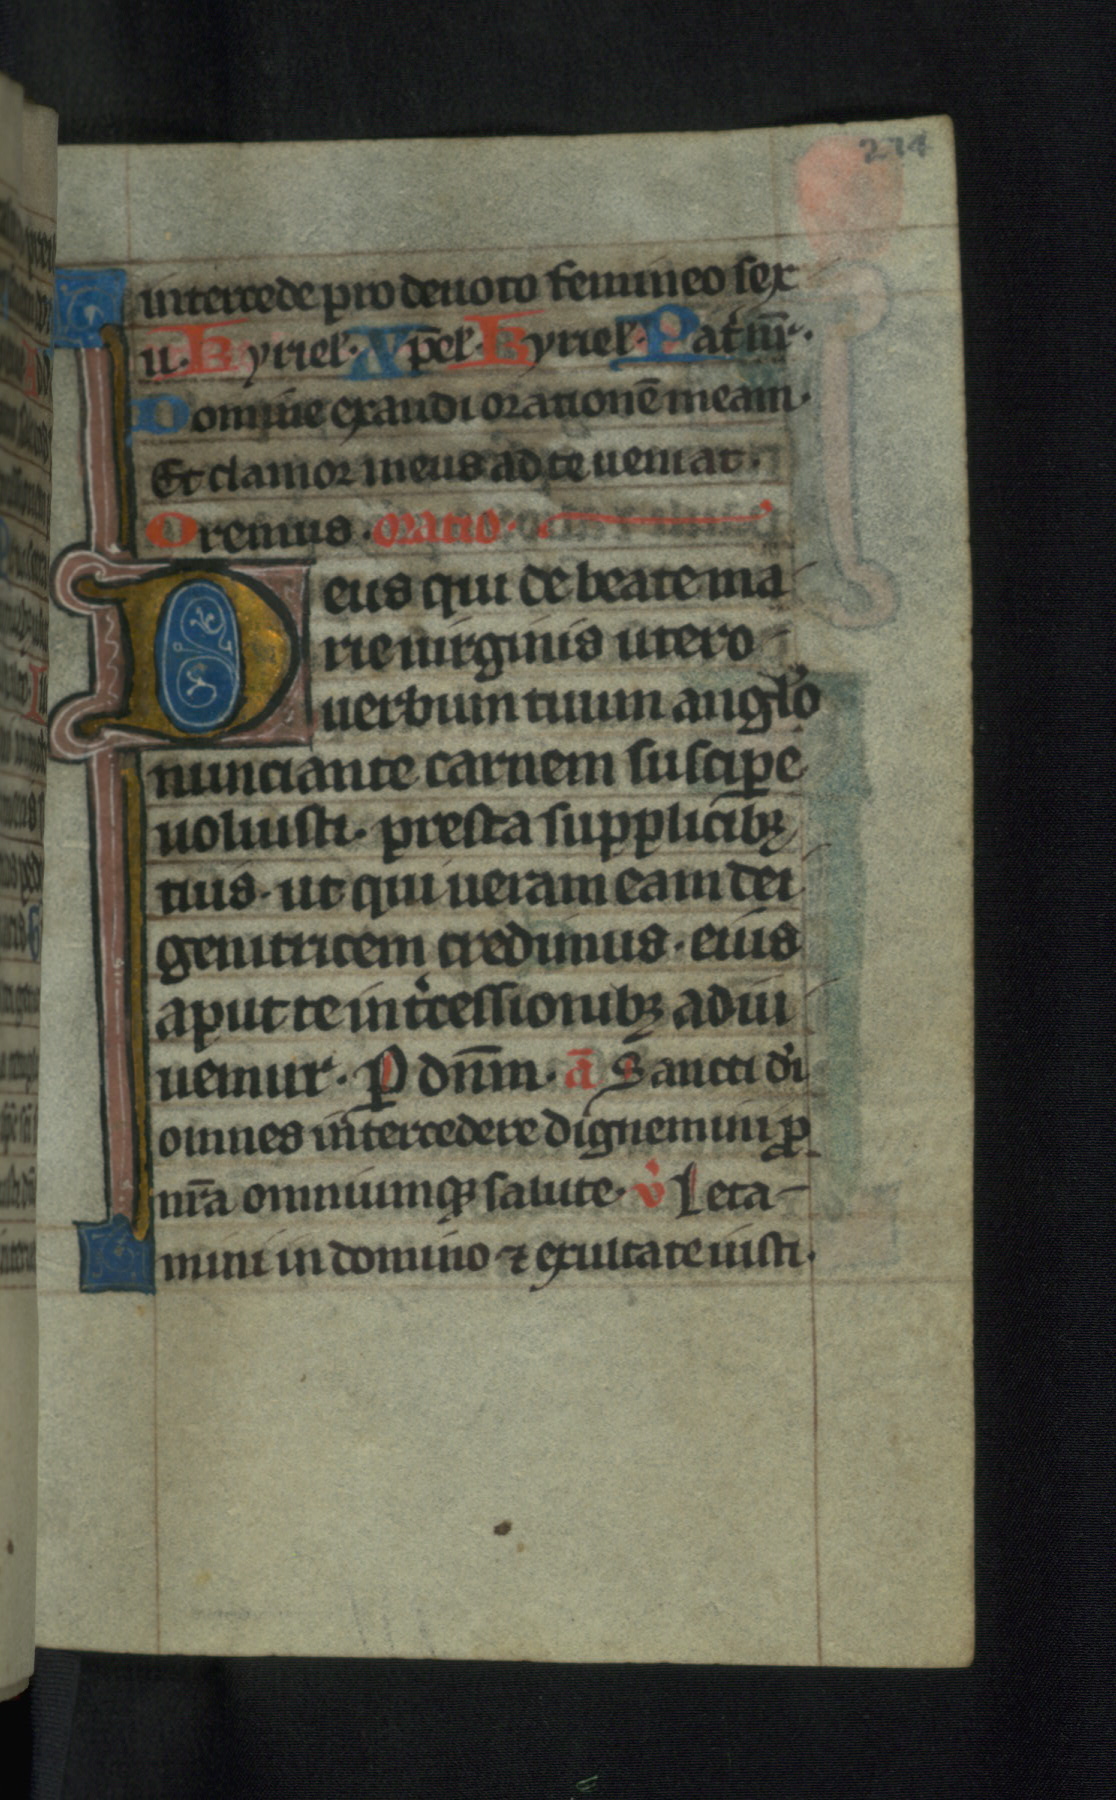 274
intercede pro deuoto femineo sex
u. Kyriel. Xpel. Kyriel. Pat nr̄.
Domine exaudi orationē meam.
Et clamor meus ad te ueniat.
Oremus. oratio.
Deus qui de beate ma
rie uirginis utero
uerbum tuum anglo
nunciante carnem suscipe
uoluisti. presta supplicibꝫ
tuis. ut qui ueram eam dei
genitricem credimus. eius
aput te int̾cessionibꝫ adiu
uemur. P dn̄m. ā Sancti dei
omnes intercedere dignemini ꝓ
nr̄a omniumqꝫ salute. v Leta
mini in domino ⁊ exultate iusti.